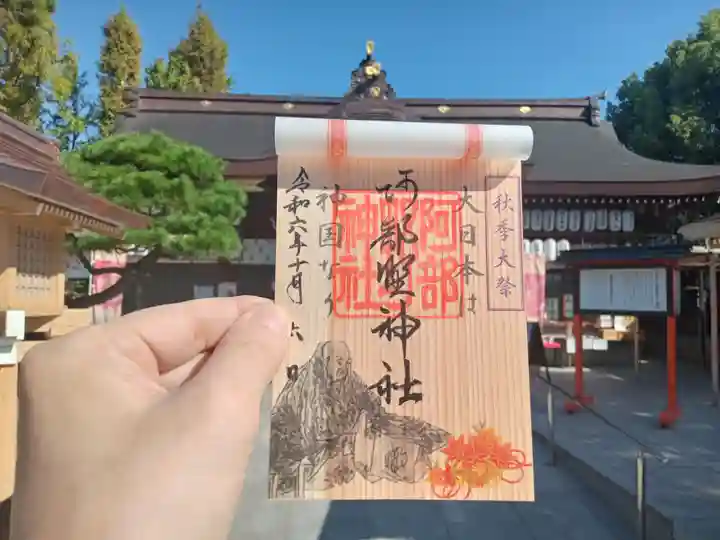 秋季大祭
大日本は
阿部野神社
阿部野神社
神国なり
令和六年十月六日